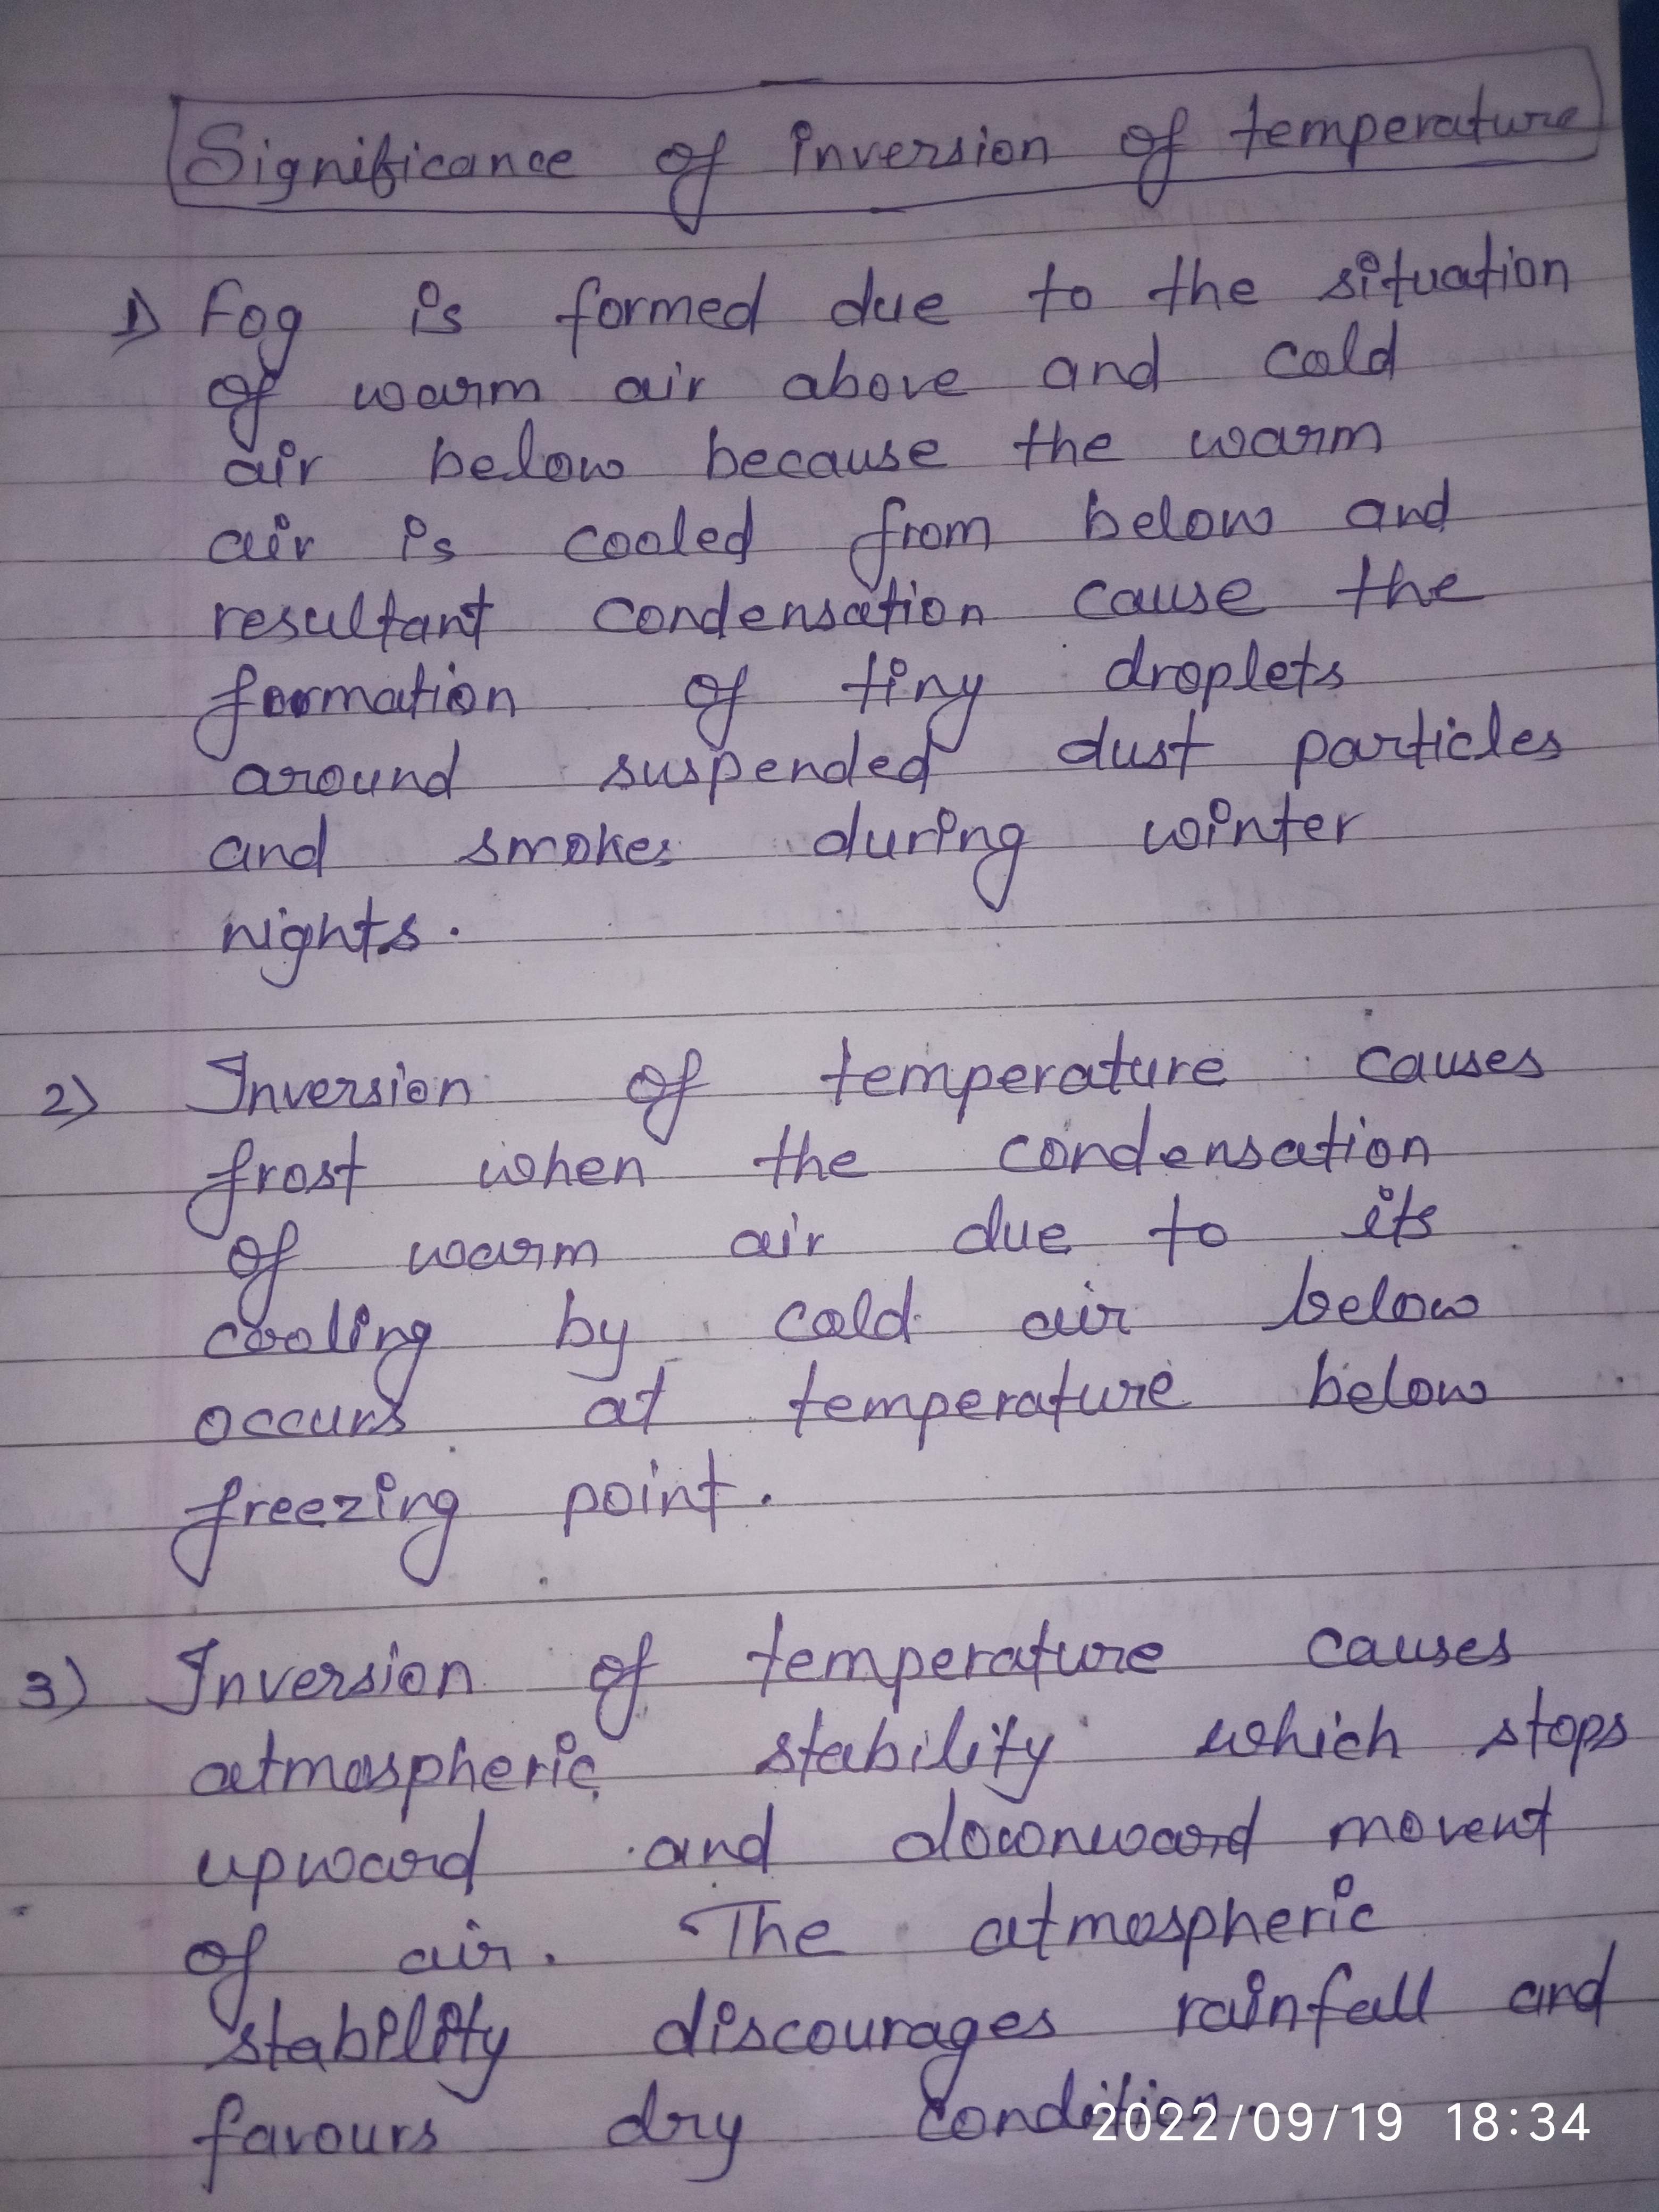 Significance of inversion of temperature
1) Fog is formed due to the situation
of warm air above and cold
air below because the warm
air is cooled from below and
resultant condensation cause the
formation of tiny droplets
around suspended dust particles
and smokes during winter
nights.
2) Inversion of temperature causes
frost when the condensation
of warm air due to its
cooling by cold air below
occurs at temperature below
freezing point.
3) Inversion of temperature causes
atmospheric stability which stops
upward and downward movent
of air. The atmospheric
stability discourages rainfall and
favours dry condition.
2022/09/19 18:34